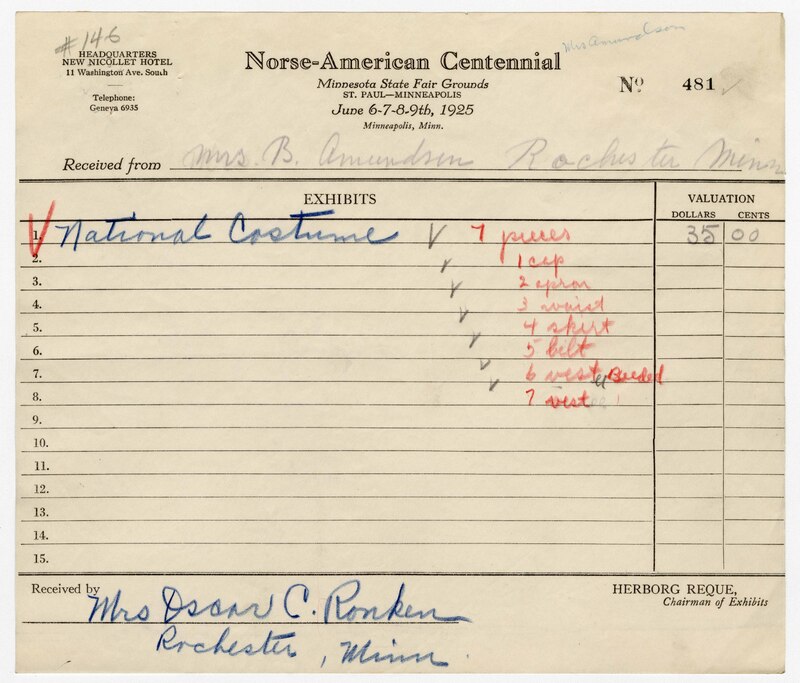 #146
HEADQUARTERS
NEW NICOLLET HOTEL
11 Washington Ave. South
Telephone:
Geneva 6935
Mrs Amundson
Norse-American Centennial
Minnesota State Fair Grounds
ST. PAUL—MINNEAPOLIS
June 6-7-8-9th, 1925
Minneapolis, Minn.
No 481
Received from Mrs. B. Amundsen Rochester Minn
EXHIBITS VALUATION
DOLLARS CENTS
1. National Costume 7 pieces 35 00
2. 1 cap
3. 2 apron
4. 3 waist
5. 4 skirt
6. 5 belt
7. 6 vest Beeded
8. 7 vest
9.
10.
11.
12.
13.
14.
15.
Received by Mrs Oscar C. Ronken
Rochester, Minn.
HERBORG REQUE,
Chairman of Exhibits